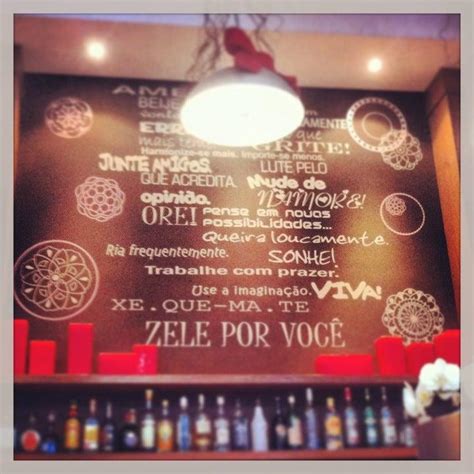 AME
BEIJE
ERR
CAMENTE
que
mais tem GRITE!
Harmonize-se mais. Importe-se menos.
JUNTE AMIGOS. LUTE PELO
QUE ACREDITA. Mude de
opinião. NAMORE!
OREI pense em novas
possibilidades...
Queira loucamente.
Ria frequentemente. SONHE!
Trabalhe com prazer.
Use a imaginação. VIVA!
XE.QUE-MA.TE
ZELE POR VOCÊ